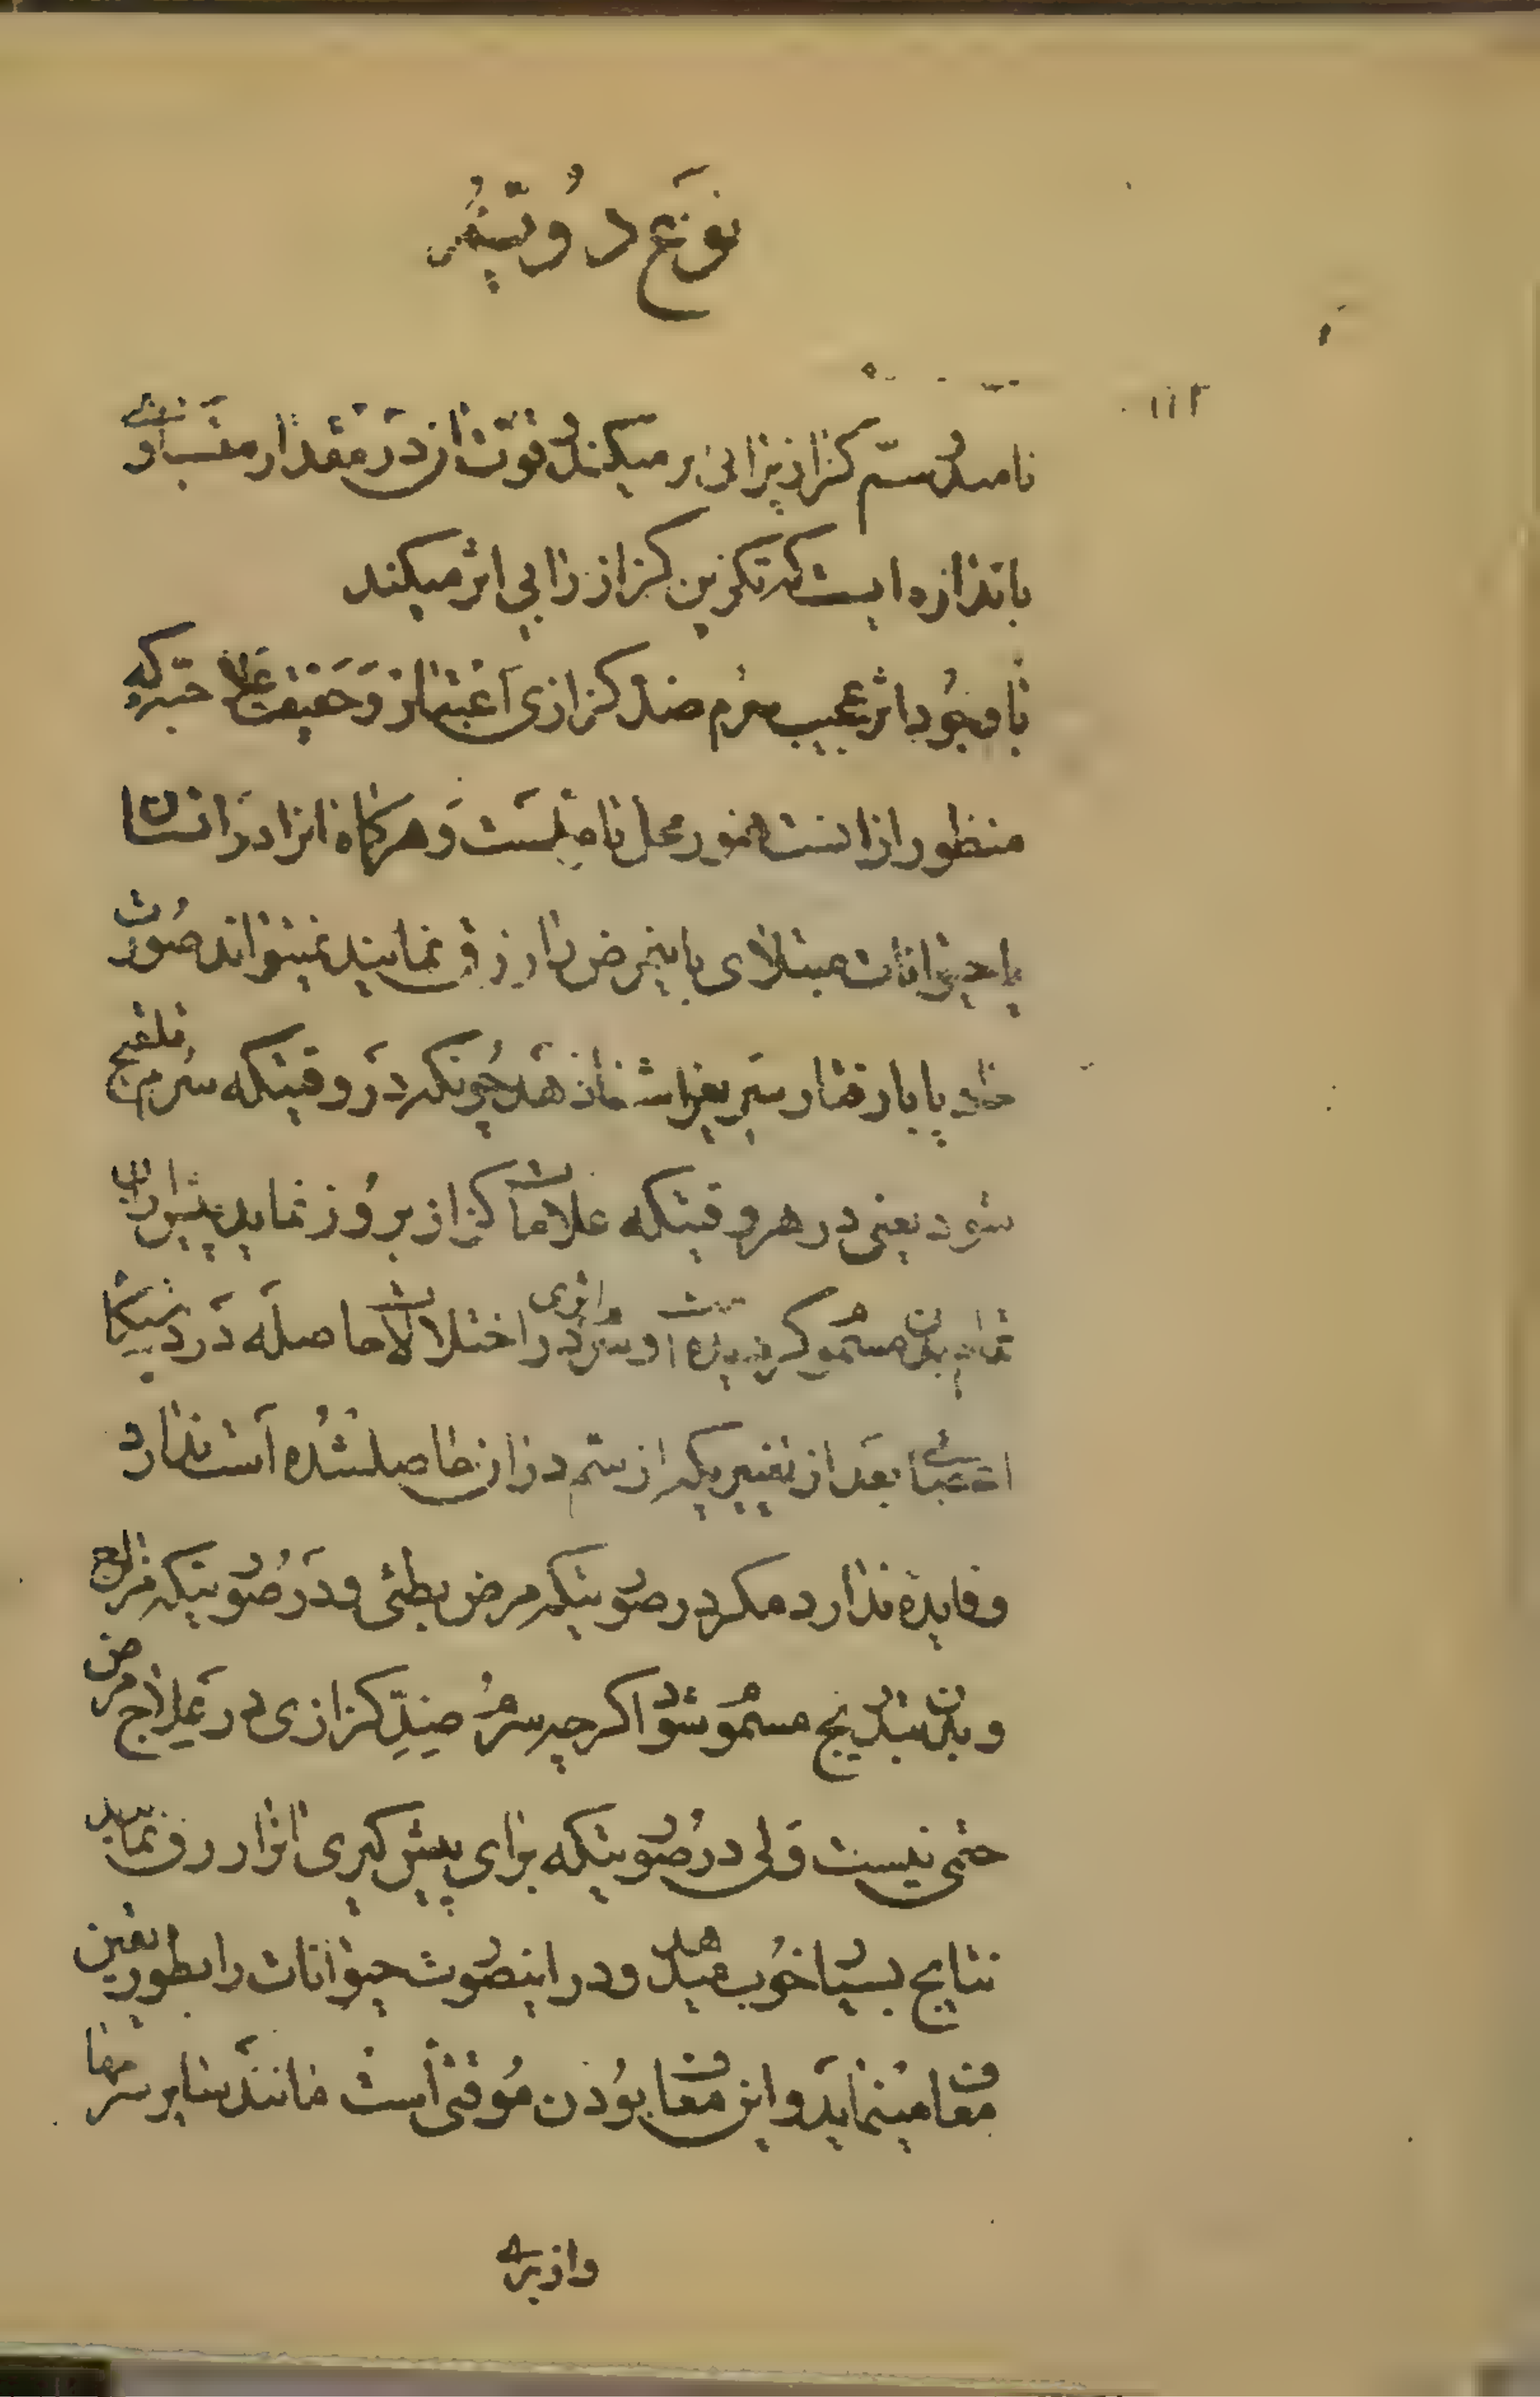 نوع دویّم
۱۱۲
نامند سم کزاز برابری میکند قوت آن در مقدار متساوی
باندازه ایست که توکزین کزاز را بی اثر میکند
با وجود اثر عجیب سرم ضد کزازی اغتنام از و حقیقت علاجیکه
منظور از آنست هنوز محل تامل است و هرگاه آنرا در انسان
یا حیوانات مبتلای باینمرض زرق نمایند نمیتواند صورت
حاد یا با رفتار سریع را شفا دهد چونکه در وقتیکه سرم تلقیح
شود یعنی در هر وقتیکه علامات کزاز بروز نماید پیش از آن
تمام بدن مسموم گردیده است و سرم اثری در اختلالات حاصله در دستگاه
اعصاب بعد از تغییریکه از سم در آن حاصلشده است ندارد
و فایده ندارد مگر در صورتیکه مرض بطئی و در صورتیکه مزاج
و بدن بتدریج مسموم شود اگرچه سرم ضدّ کزازی در علاج مرض
حتمی نیست ولی در صورتیکه برای پیش گیری آنرا زرق نمایند
نتایج بسیار خوب میدهد و در اینصورت حیوانات را بطور یقین
معاف مینماید و این معاف بودن موقتی است مانند سایر سرمها
و از برای